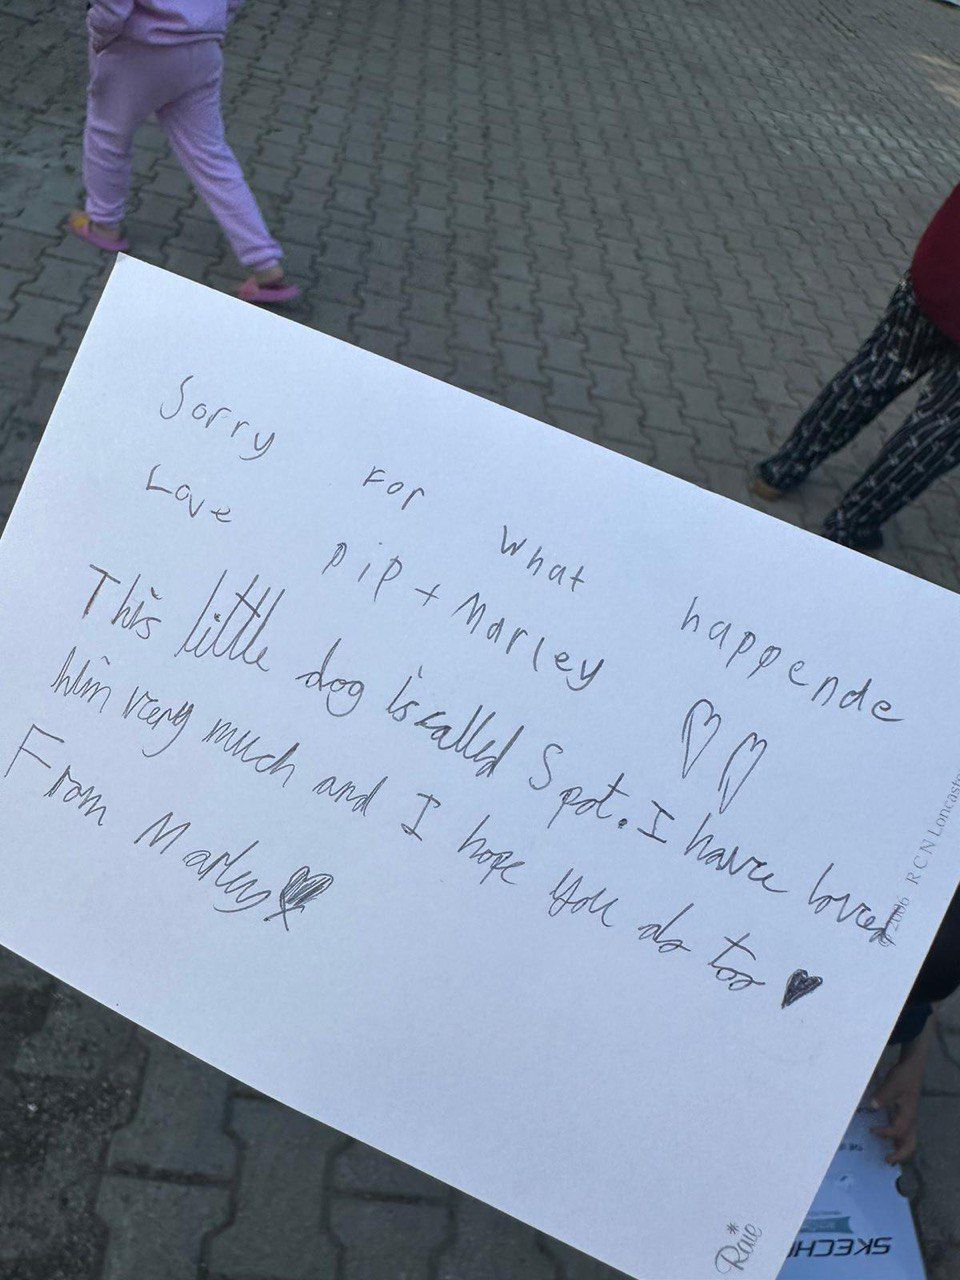 Sorry For What happende
Love pip + Marley
This little dog is called Spot. I have loved
him very much and I hope you do too
From Marley
© 2006 R C N Loncaster
Raie
SKECHE